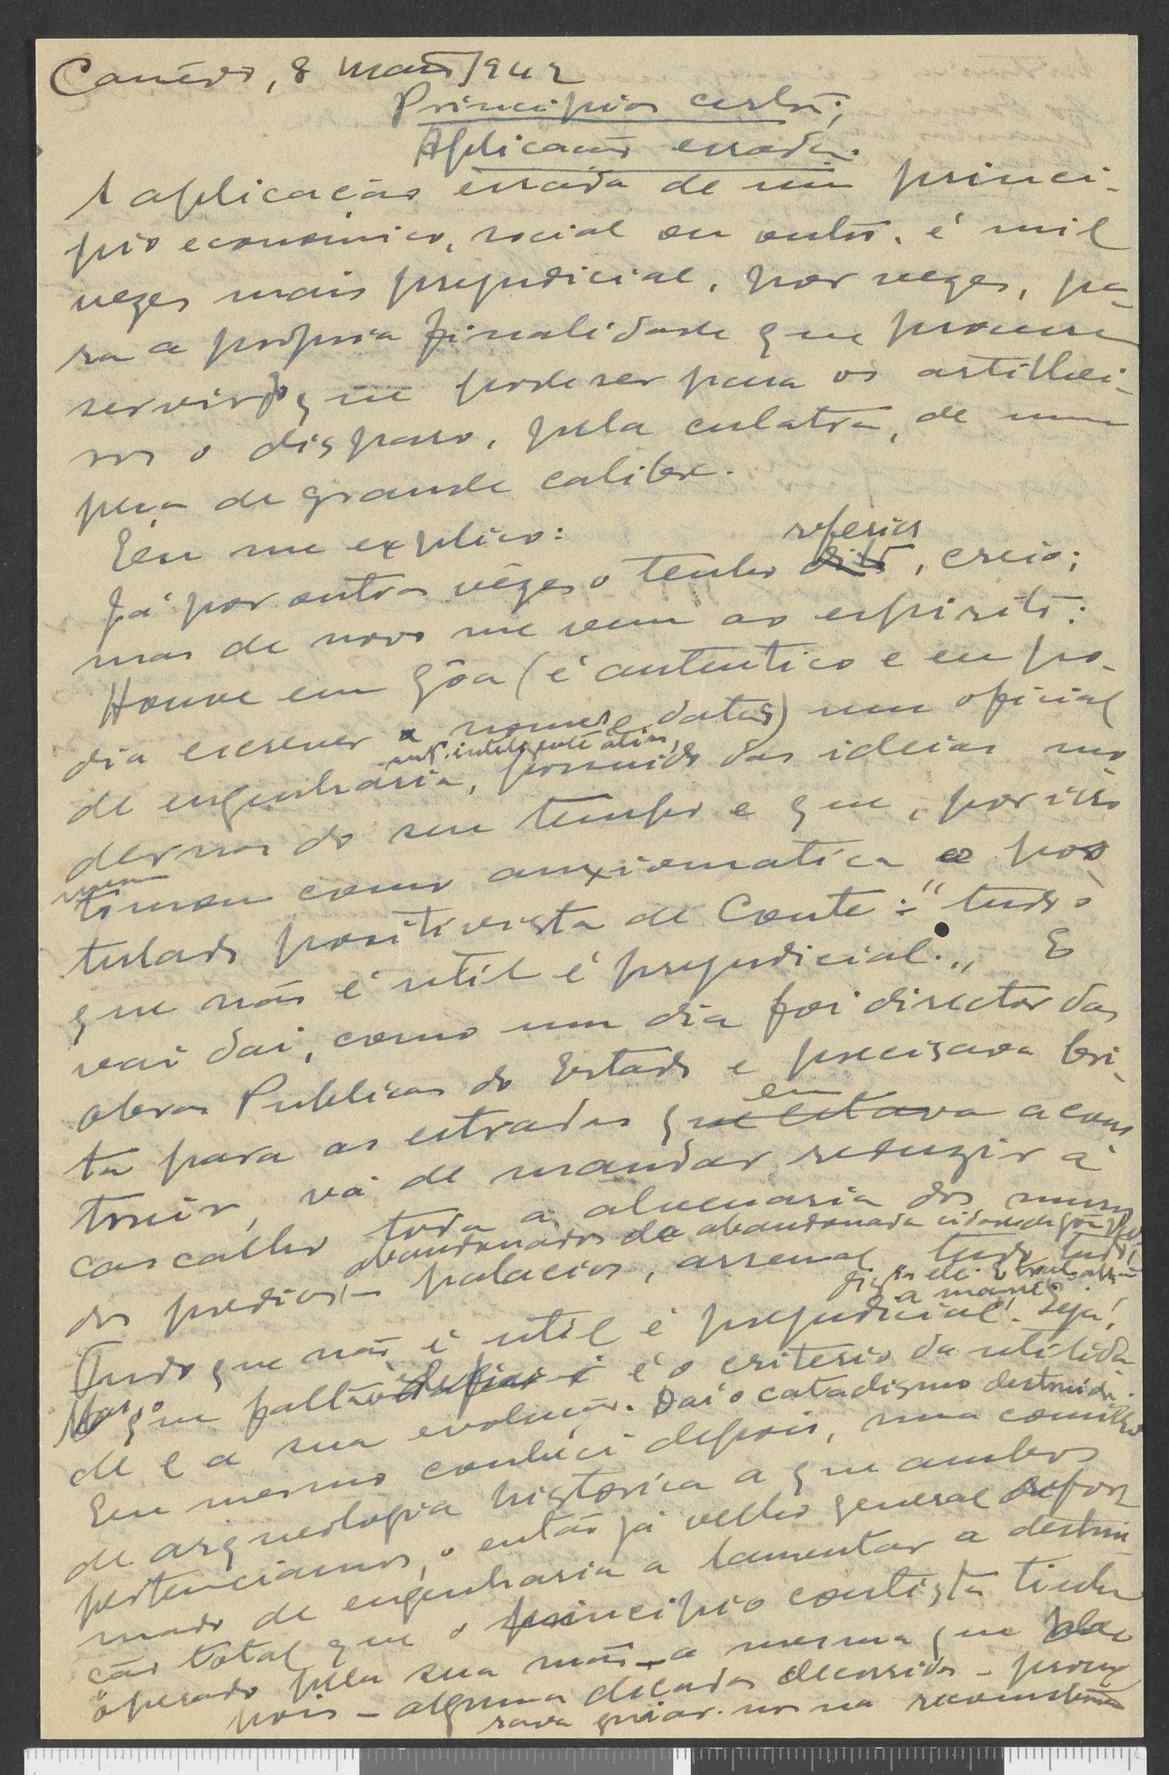 Canêdo, 8 março 1942
Principios certos;
Aplicação errada.
A aplicação errada de um princi-
pio economico, social ou outro, é mil
vezes mais prejudicial, por vezes, pa-
ra a propria finalidade que procura
servir do que pode ser para os artilhei-
ros o disparo, pela culatra, de uma
peça de grande calibre.
Eu me explico:
referido
Já por outras vêzes o tenho dito, creio;
mas de novo me vem ao espirito:
Houve em Gôa (é autentico e eu po-
dia escrever nomes e datas) um oficial
inteligente aliás,
de engenharia, possuido das ideias mo-
dernas do seu tempo e que, por isso
tomou como auxiomatica o pos
tulado positivista de Conte: "tudo o
que não é util é prejudicial." E
vai dai, como um dia foi director das
obras Publicas do Estado e precisava bri-
em
ta para as estradas que estava a cons
truir, vá de mandar reduzir a
cascalho toda a alvenaria dos muros
abandonados da abandonada cidade de Gôa
dos predios, palacios, arsenal, tudo, tudo!
Tudo que não é util é prejudicial! Seja!
Mas o que falta definir é o criterio da utilida-
de e a sua evolução. Daí o cataclismo destruidor.
Eu mesmo conheci depois, numa comissão
de arqueologia historica a que ambos
pertenciamos, o então já velho general refor
mado de engenharia a lamentar a destrui
ção total que o principio contista tinha
operado pela sua mão - a mesma que
pois - alguma decadas decorridas - procu
rava guiar-nos na reconstituição